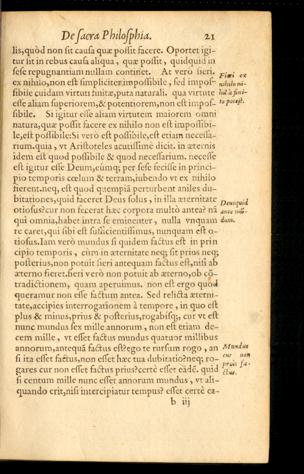 De sacra Philosphia. 21
lis, quòd non sit causa quæ possit facere. Oportet igi-
tur sit in rebus causa aliqua, quæ possit, quidquid in
sese repugnantiam nullam continet. At verò fieri
ex nihilo, non est simpliciter impossibile, sed impos-
sibile cuidam virtuti finitæ, puta naturali. qua virtute
esse aliam superiorem, & potentiorem, non est impos-
sibile. Si igitur esse aliam virtutem maiorem omni
natura, quæ possit facere ex nihilo non est impossibi-
le, est possibile: Si verò est possibile, est etiam necessa-
rium. quia, vt Aristoteles acutissimè dicit. in æternis
idem est quod possibile & quod necessarium. necesse
est igitur esse Deum, eúmq; per sese fecisse in princi-
pio temporis cœlum & terram, iubendo vt ex nihilo
fierent. neq, est quod quempiā perturbent aniles du-
bitationes, quid faceret Deus solus, in illa æternitate
otiosus? cur non fecerat hæc corpora multò antea? nā
qui omnia, habet intra se eminenter, nulla vnquam
re caret, qui sibi est sufficientissimus, nunquam est o-
tiosus. Iam verò mundus si quidem factus est in prin
cipio temporis, eùm in æternitate neq; sit prius neq;
posterius, non potuit fieri antequam factus est, nisi ab
æterno fieret. fieri verò non potuit ab æterno, ob cō-
tradictionem, quam aperuimus. non est ergo quòd
queramur non esse factum antea. Sed relicta æterni-
tate, accipies interrogationem à tempore, in quo est
plus & minus, prius & posterius, rogabisq;, cur vt est
nunc mundus sex mille annorum, non est etiam de-
cem mille, vt esset factus mundus quatuor millibus
annorum, antequā factus est? ego te rursum rogo, an
si ita esset factus, non esset hæc tua dubitatio? neq; ro-
gares cur non esset factus prius? certè esset eādē. quid
si centum mille nunc esset annorum mundus, vt ali-
quando erit, nisi intercipiatur tempus? esset certè ca-
b iij
Fieri ex
nihilo ni-
hil à fini-
to potest.
Deus quid
ante mū-
dum.
Mundus
cur non
prius fa-
ctus.